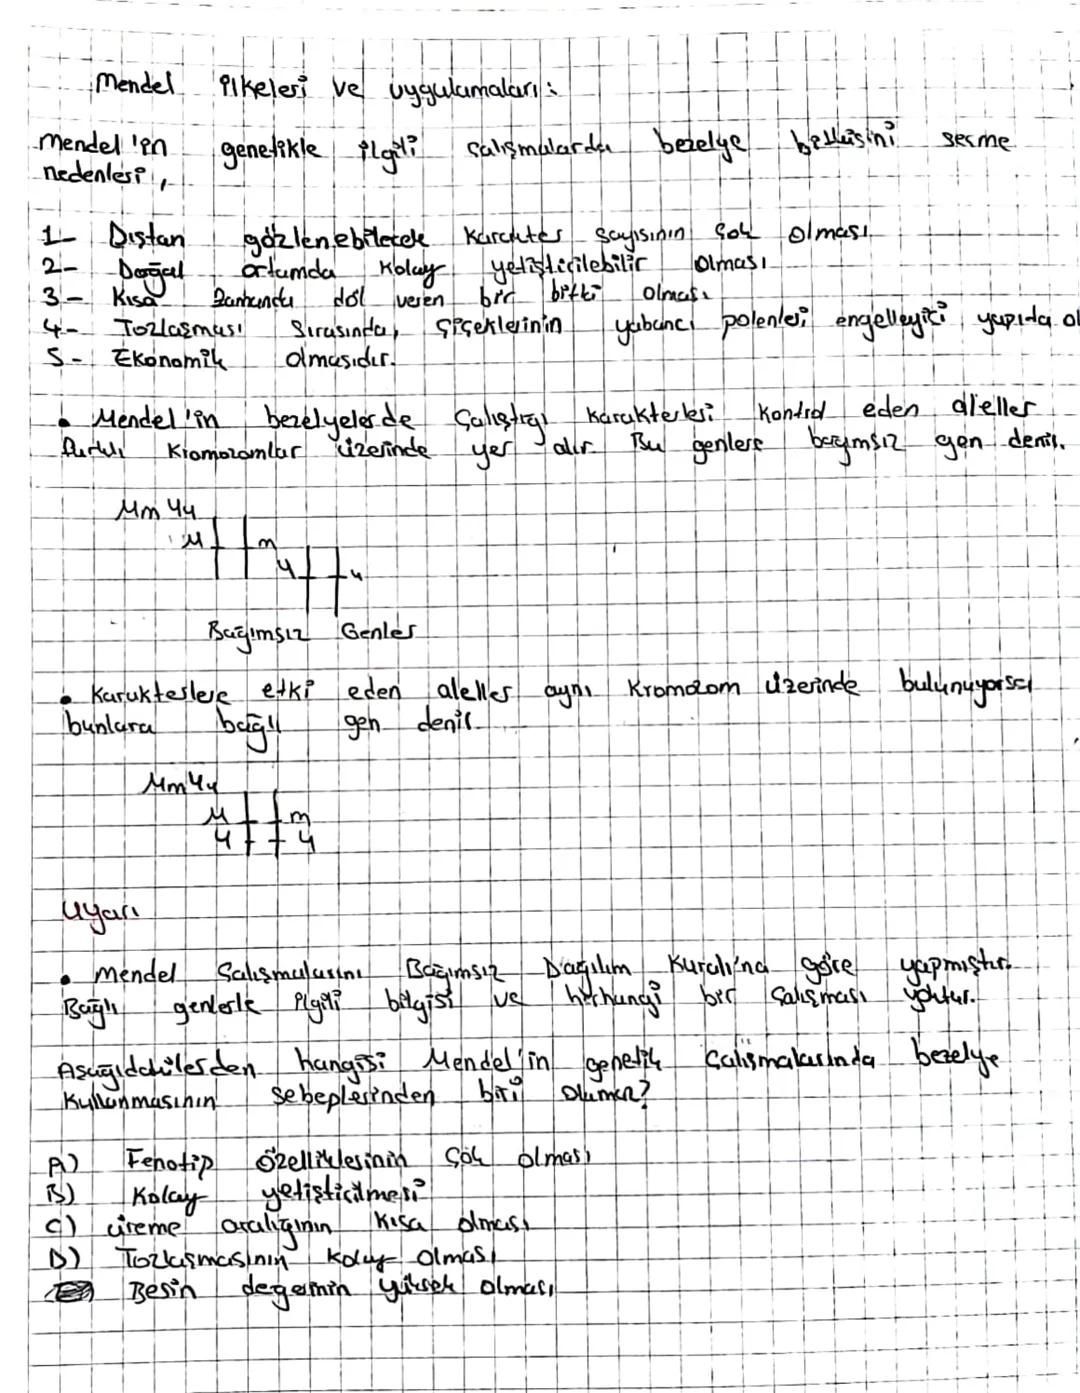 Mendel ilkeleri ve uygulamaları:
Mendel'in genetikle ilgili çalışmalarda bezelye bitkisini seçme
nedenleri,
1- Dıştan gözlenebilecek karakter sayısının çok olması
2- Doğal ortamda kolay yetiştirilebilir olması
3- Kısa zamanda döl veren bir bitki olması
4- Tozlaşması sırasında, çiçeklerinin yabancı polenleri engelleyici yapıda ol
5- Ekonomik olmasıdır.
• Mendel'in bezelyelerde çalıştığı karakterleri kontrol eden aleller
farklı kromozomlar üzerinde yer alır. Bu genlere bağımsız gen denir.
Mm Yy
M m
Y y
Bağımsız Genler
• Karakterlere etki eden aleller aynı kromozom üzerinde bulunuyorsa
bunlara bağlı gen denir.
MmYy
M m
Y y
Uyarı
• Mendel çalışmalarını Bağımsız Dağılım Kuralı'na göre yapmıştır.
Bağlı genlerle ilgili bilgisi ve herhangi bir çalışması yoktur.
Aşağıdakilerden hangisi Mendel'in genetik çalışmalarında bezelye
kullanmasının sebeplerinden biri olamaz?
A) Fenotip özelliklerinin çok olması
B) Kolay yetiştirilmesi
C) üreme aralığının kısa olması
D) Tozlaşmasının kolay olması
Besin değerinin yüksek olması